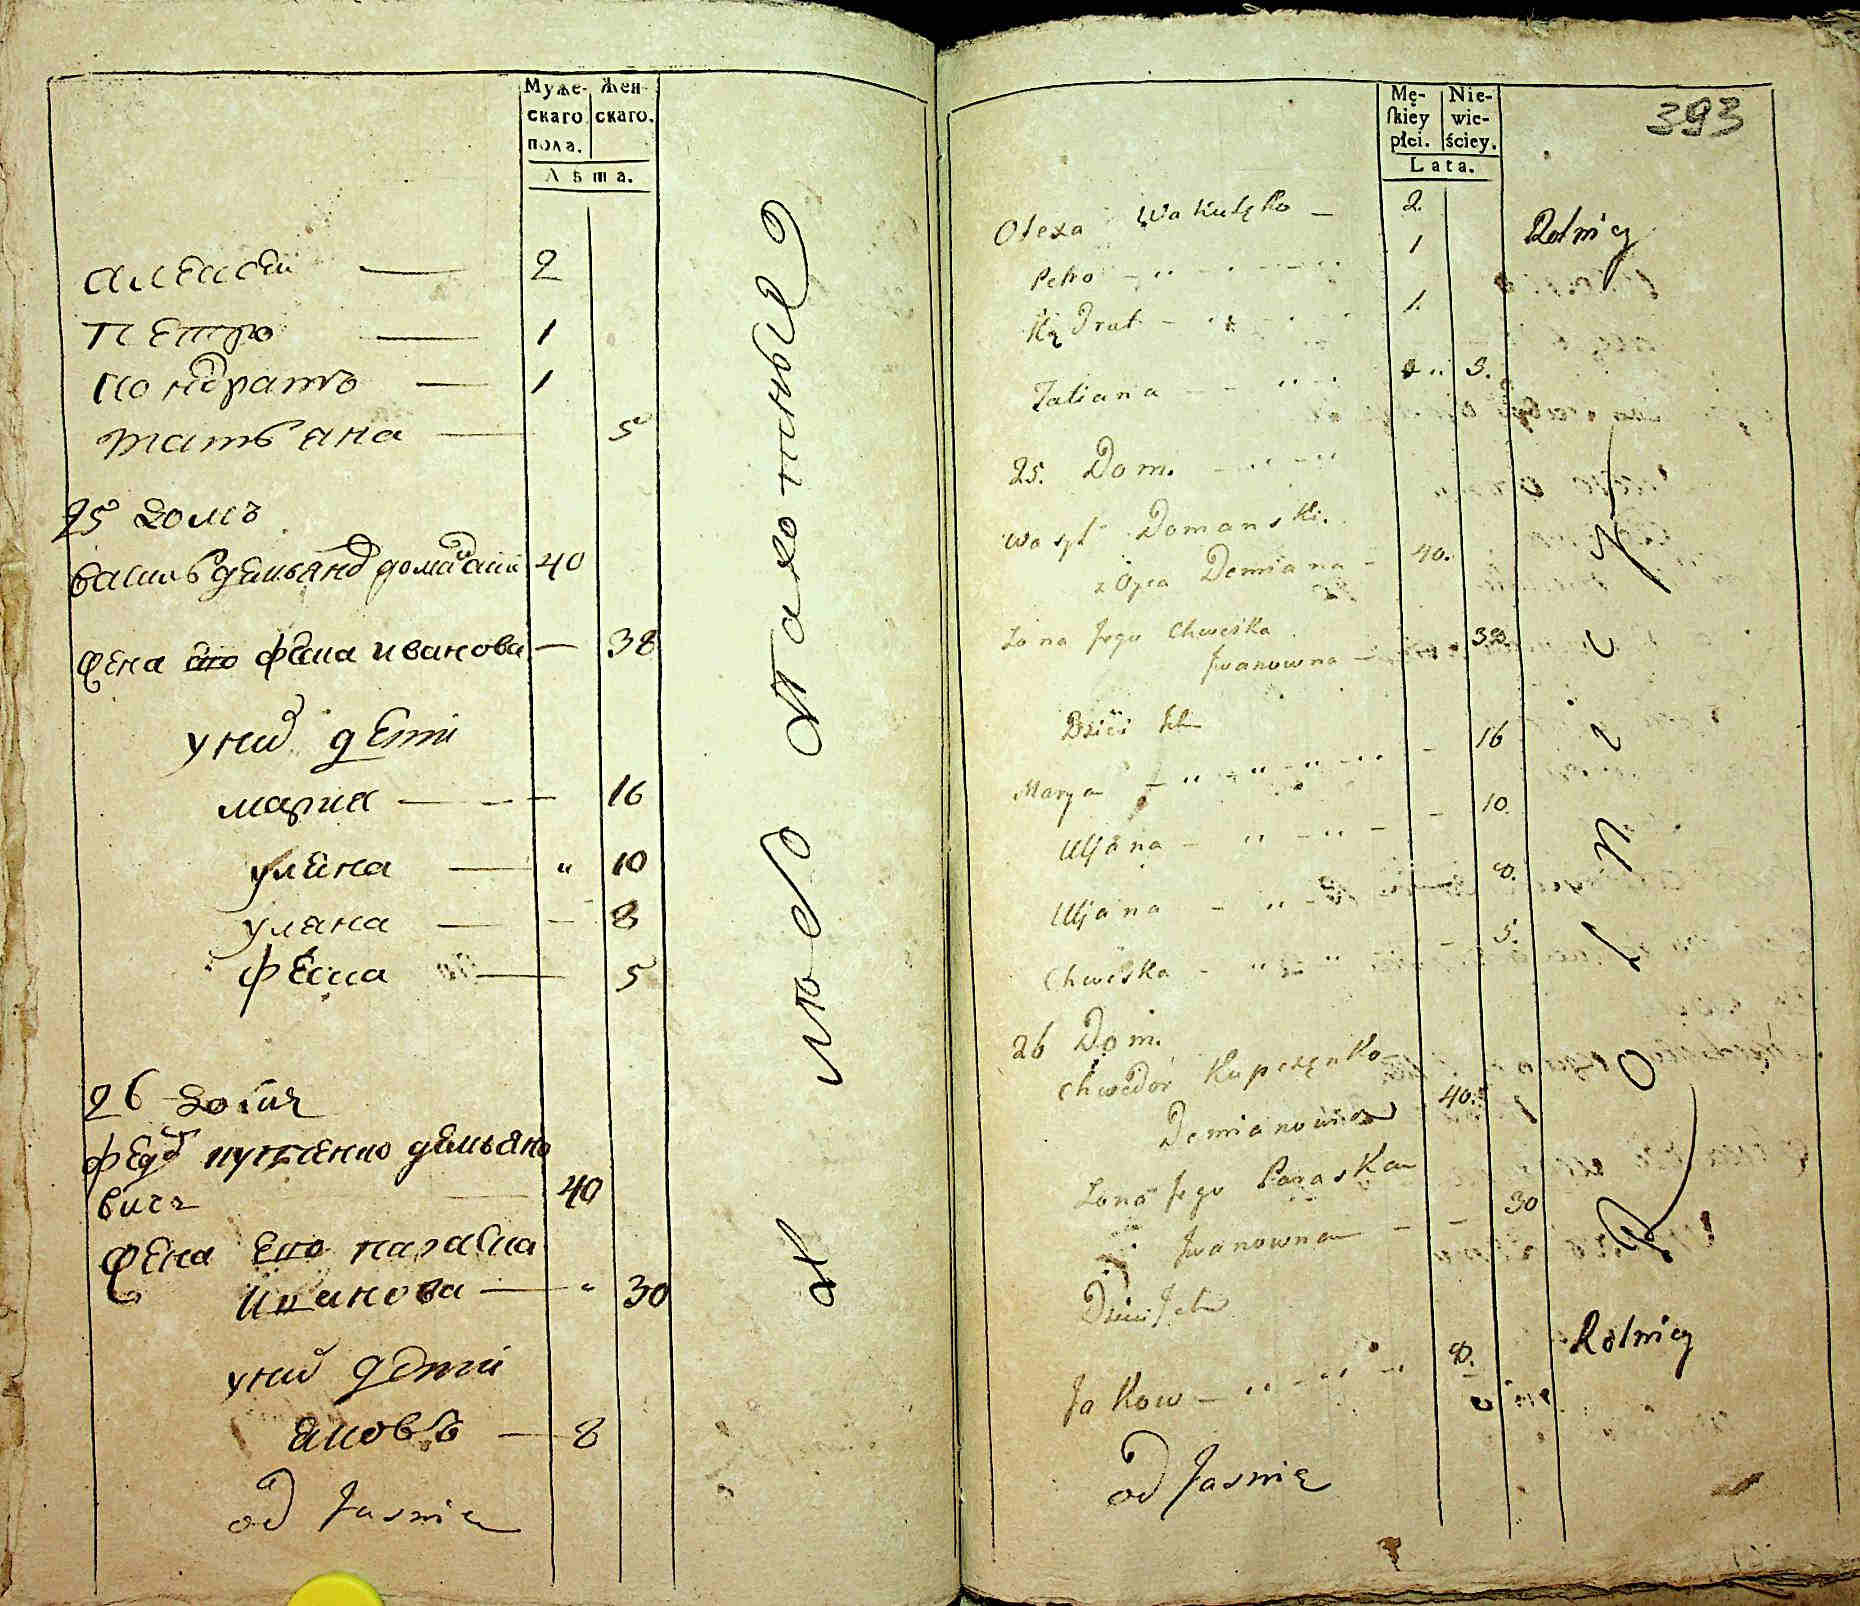 Муже-
скаго
пола.
Жен-
скаго.
Лѣта.
Алексѣй — 2
Петро — 1
Кондратъ — 1
Татьяна — 5
25 домъ
Василь Демьяновъ Доманскій 40
жена его Феска Иванова — 38
у них дети
Мария — 16
Улияна — " 10
Уляна — 8
Феска — 5
26 домъ
Федор Купченко Демьяно
вичъ 40
Жена Его Параска
Иванова — " 30
у них дети
Яковъ — 8
od Jasnie
Mę-
skiey
płci.
Nie-
wie-
ściey.
Lata.
393
Olexa Wakulęko — 2.
Rolnicy
Petro 1
Kądrat 1.
Tatiana 5.
25. Dom.
Wasyl Domanski.
z Oyca Demiana — 40.
Zona Jego Chweśka
Iwanowna — 38.
Dzieci Ich
Marya 16
Uljana 10
Uljana 8.
Chweśka 5.
Rolnicy
26 Dom.
Chwedor Kupczęnko
Demianowicz 40.
Zona Jego Paraska
Iwanowna — 30
Dzieci Ich
Jakow 8.
Rolnicy
od Jasnie